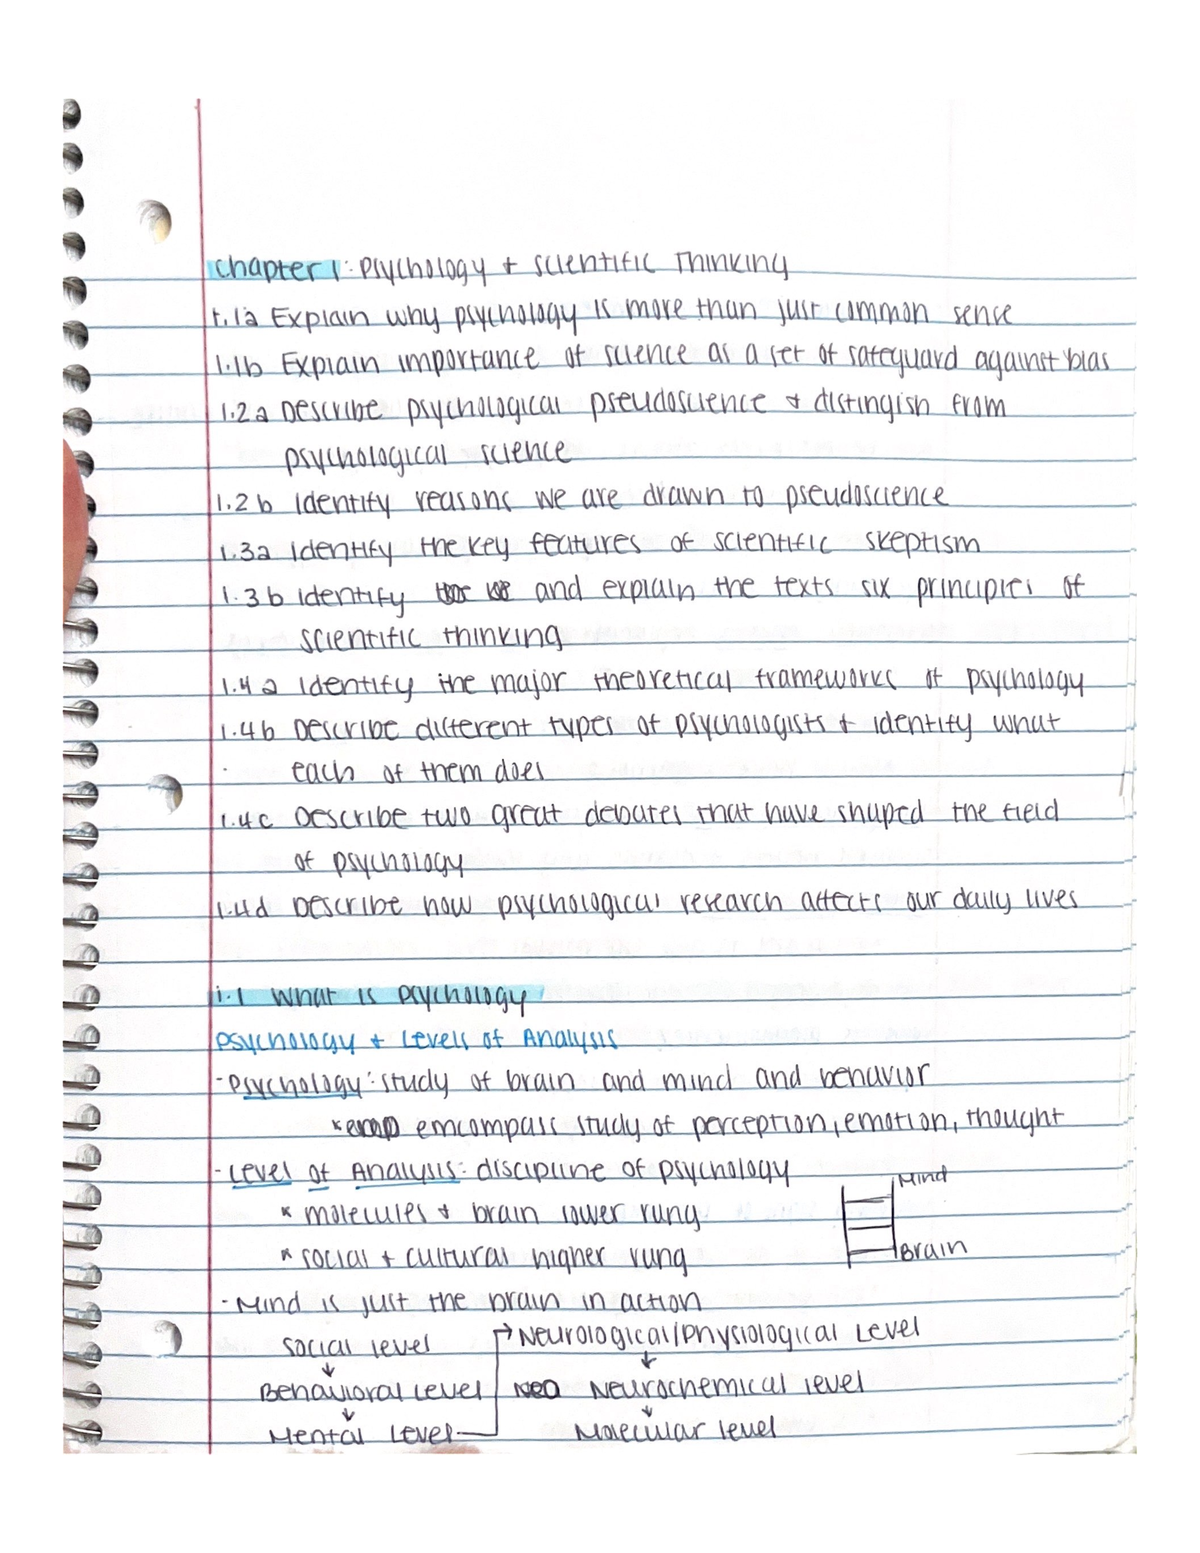 Chapter 1: Psychology + Scientific Thinking
1.1a Explain why psychology is more than just common sense
1.1b Explain importance of science as a set of safeguard against bias
1.2a Describe psychological pseudoscience + distingish from
psychological science
1.2b Identify reasons we are drawn to pseudoscience
1.3a Identify the key features of scientific skeptism
1.3b Identify and explain the texts six principles of
scientific thinking
1.4a Identify the major theoretical frameworks of psychology
1.4b Describe different types of psychologists + identify what
each of them does
1.4c Describe two great debates that have shaped the field
of psychology
1.4d Describe how psychological research affects our daily lives
1.1 What is psychology
Psychology + Levels of Analysis
- Psychology: study of brain and mind and behavior
* emcompass study of perception, emotion, thought
- Level of Analysis: discipline of psychology
Mind
* molecules + brain lower rung
* social + cultural higher rung
Brain
- Mind is just the brain in action
Social level → Neurological/Physiological Level
↓ ↓
Behavioral Level Neurochemical level
↓ ↓
Mental Level Molecular level